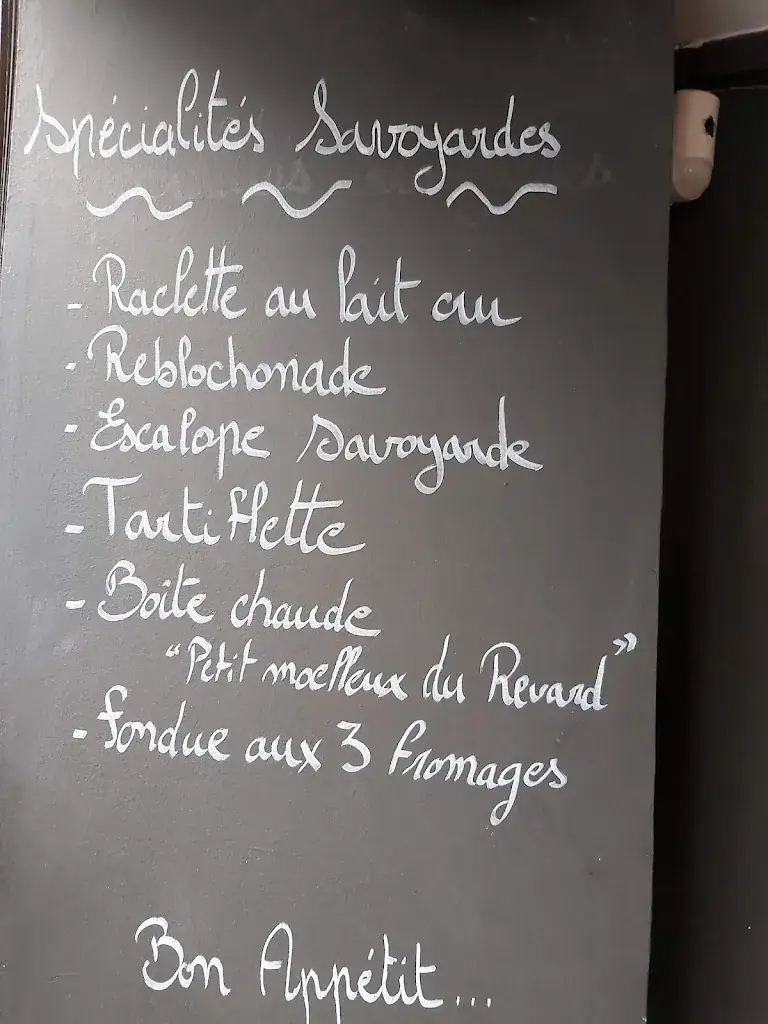 Spécialités Savoyardes
- Raclette au lait cru
- Reblochonade
- Escalope savoyarde
- Tartiflette
- Boîte chaude
"Petit moelleux du Revard"
- fondue aux 3 fromages
Bon Appétit...